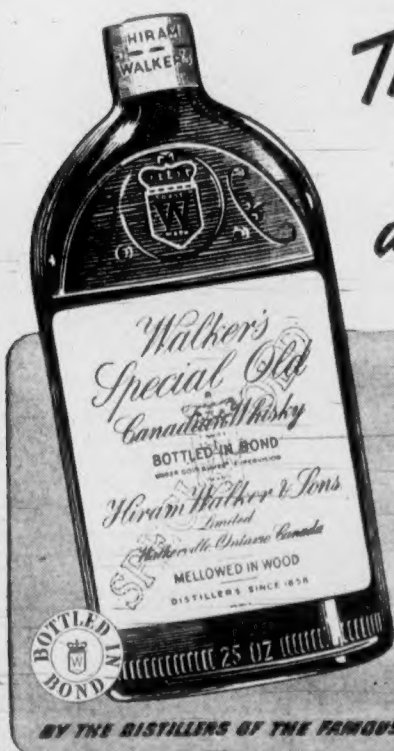 HIRAM
WALKER
W
Walker's
Special Old
Canadian Whisky
BOTTLED IN BOND
UNDER GOVERNMENT SUPERVISION
Hiram Walker & Sons
Limited
Walkerville Ontario Canada
MELLOWED IN WOOD
DISTILLERS SINCE 1858
25 OZ
BOTTLED IN
BOND
W
BY THE DISTILLERS OF THE FAMOUS